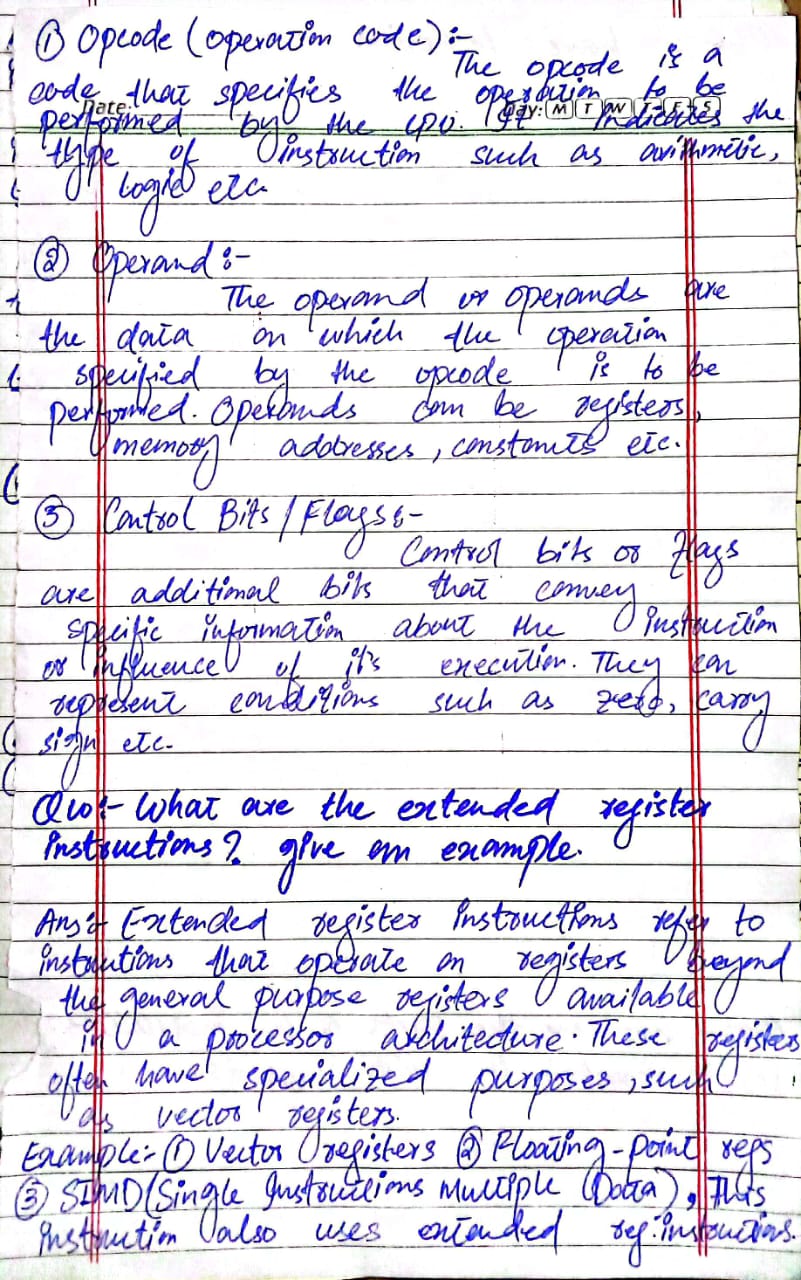 ① Opcode (operation code):-
The opcode is a
code that specifies the operation to be
Date: Day: M T W T F S
performed by the CPU. It indicates the
type of instruction such as arithmetic,
logic etc.
② Operand:-
The operand or operands are
the data on which the operation
specified by the opcode is to be
performed. Operands can be registers,
memory addresses, constants etc.
③ Control Bits / Flags:-
Control bits or flags
are additional bits that convey
specific information about the instruction
or influence of it's execution. They can
represent conditions such as zero, carry
sign etc.
Q10:- What are the extended register
instructions? give an example.
Ans:- Extended register instructions refer to
instructions that operate on registers beyond
the general purpose registers available
in a processor architecture. These registers
often have specialized purposes, such
as vector registers.
Example:- ① Vector registers ② Floating-point regs
③ SIMD (Single Instructions Multiple Data), This
instruction also uses extended reg. instructions.